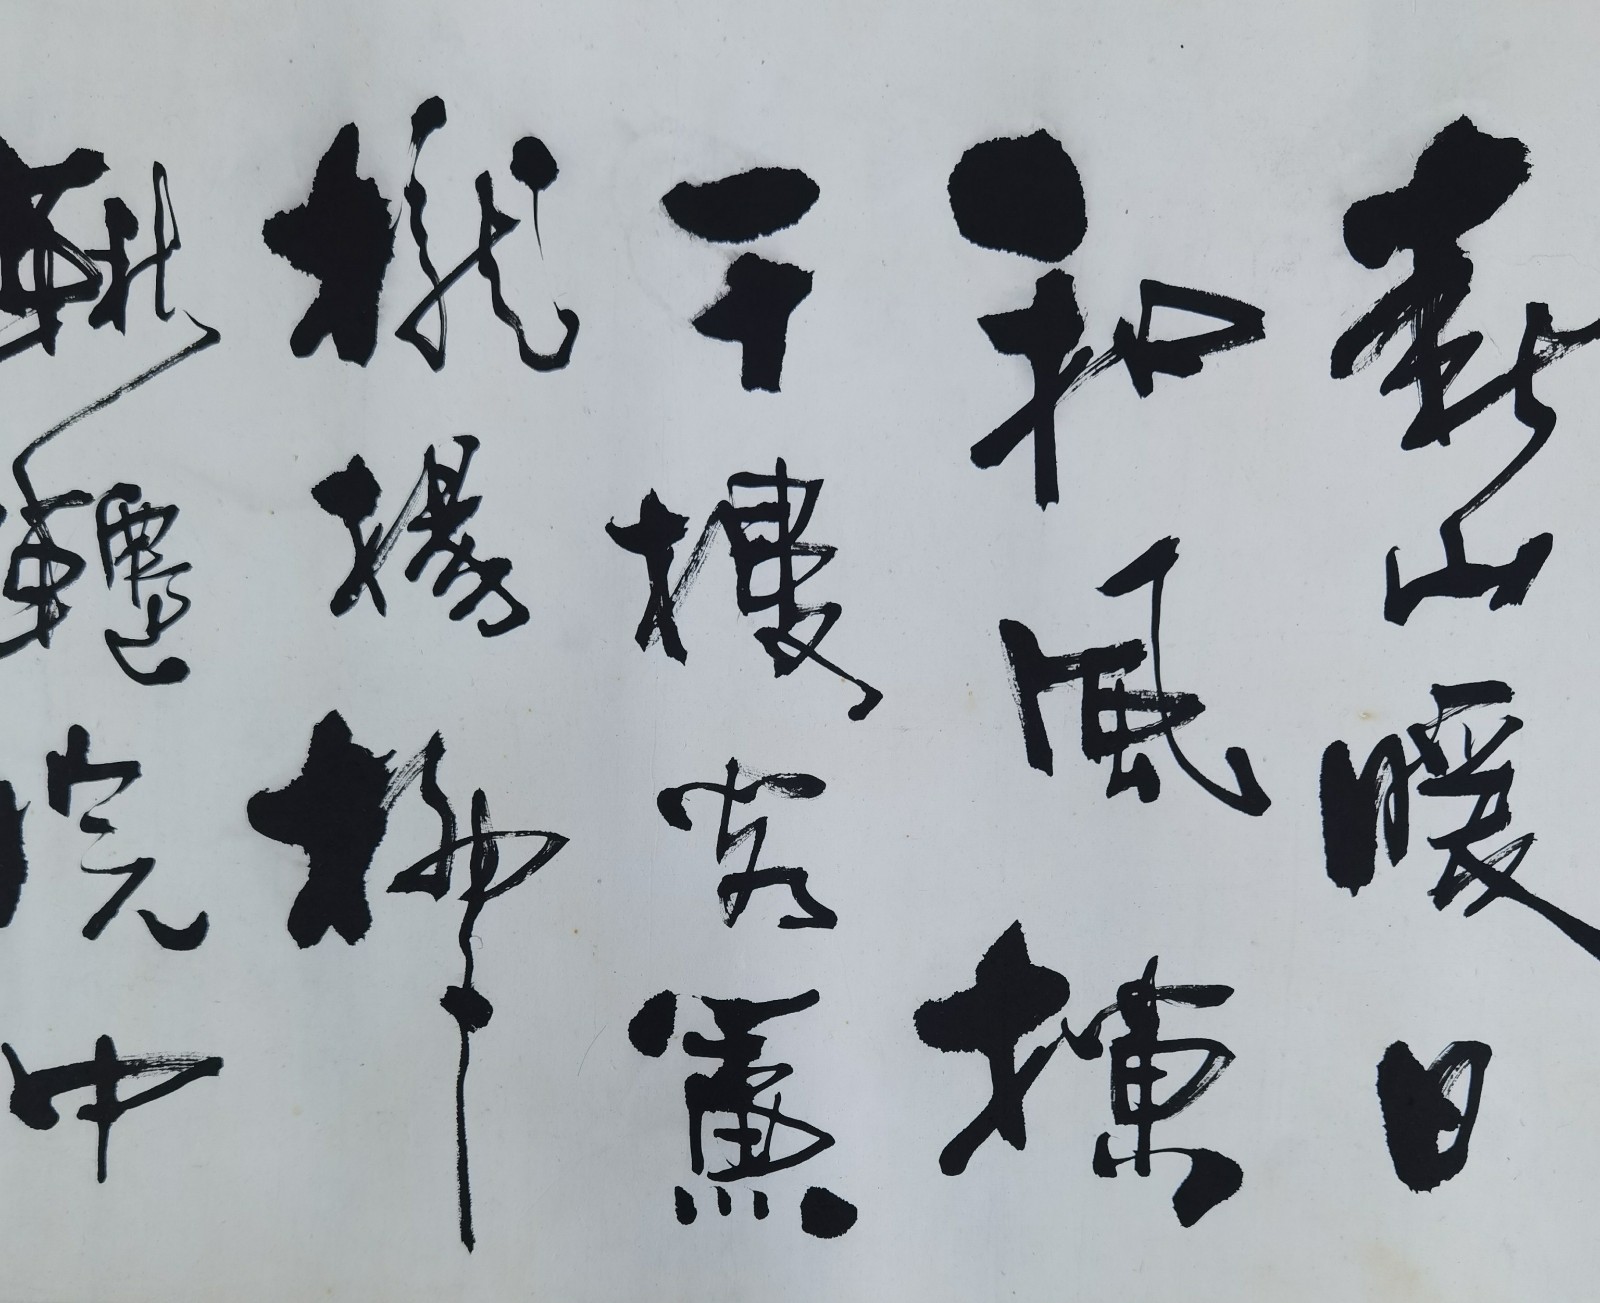 春山暖日
和風欄
干樓閣簾
櫳楊柳
鞦韆院中